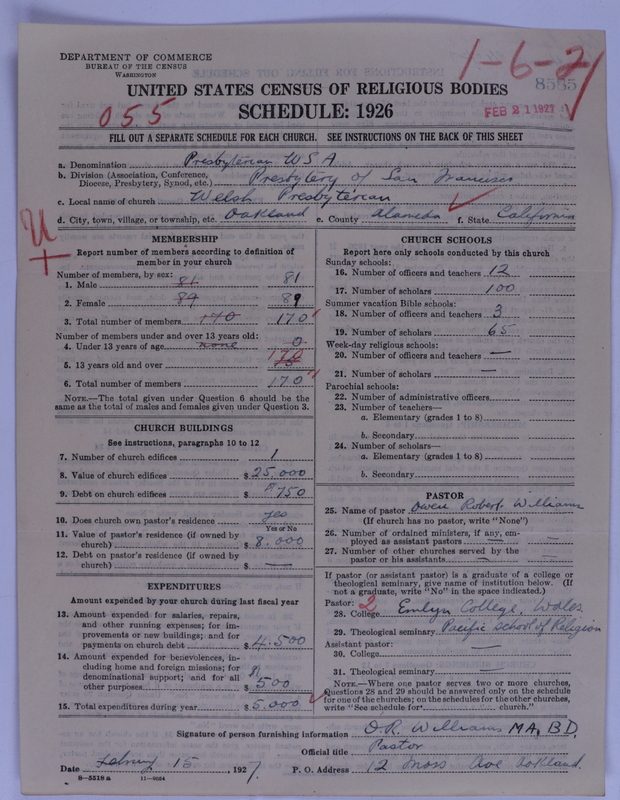 DEPARTMENT OF COMMERCE
BUREAU OF THE CENSUS
WASHINGTON
1-6-2
8585
UNITED STATES CENSUS OF RELIGIOUS BODIES
FEB 21 1927
055
SCHEDULE: 1926
FILL OUT A SEPARATE SCHEDULE FOR EACH CHURCH. SEE INSTRUCTIONS ON THE BACK OF THIS SHEET
a. Denomination Presbyterian USA
b. Division (Association, Conference, Diocese, Presbytery, Synod, etc.) Presbytery of San Francisco
c. Local name of church Welsh Presbyterian
d. City, town, village, or township, etc. Oakland e. County Alameda f. State California
MEMBERSHIP
Report number of members according to definition of
member in your church
Number of members, by sex:
1. Male 81 81
2. Female 89 89
3. Total number of members 170 170
Number of members under and over 13 years old:
4. Under 13 years of age none 0
5. 13 years old and over 170
6. Total number of members 170
NOTE.—The total given under Question 6 should be the
same as the total of males and females given under Question 3.
CHURCH BUILDINGS
See instructions, paragraphs 10 to 12
7. Number of church edifices 1
8. Value of church edifices $ 25,000
9. Debt on church edifices $ 750
10. Does church own pastor's residence yes
Yes or No
11. Value of pastor's residence (if owned by
church) $ 8.000
12. Debt on pastor's residence (if owned by
church) $ —
EXPENDITURES
Amount expended by your church during last fiscal year
13. Amount expended for salaries, repairs,
and other running expenses; for im-
provements or new buildings; and for
payments on church debt $ 4.500
14. Amount expended for benevolences, in-
cluding home and foreign missions; for
denominational support; and for all
other purposes $ 500
15. Total expenditures during year $ 5.000
CHURCH SCHOOLS
Report here only schools conducted by this church
Sunday schools:
16. Number of officers and teachers 12
17. Number of scholars 100
Summer vacation Bible schools:
18. Number of officers and teachers 3
19. Number of scholars 65
Week-day religious schools:
20. Number of officers and teachers —
21. Number of scholars —
Parochial schools:
22. Number of administrative officers
23. Number of teachers—
a. Elementary (grades 1 to 8)
b. Secondary
24. Number of scholars—
a. Elementary (grades 1 to 8)
b. Secondary
PASTOR
25. Name of pastor Owen Robert Williams
(If church has no pastor, write "None")
26. Number of ordained ministers, if any, em-
ployed as assistant pastors — —
27. Number of other churches served by the
pastor or his assistants — —
If pastor (or assistant pastor) is a graduate of a college or
theological seminary, give name of institution below. (If
not a graduate, write "No" in the space indicated.)
Pastor: 2
28. College Emlyn College, Wales
29. Theological seminary Pacific School of Religion
Assistant pastor:
30. College —
31. Theological seminary —
NOTE.—Where one pastor serves two or more churches,
Questions 28 and 29 should be answered only on the schedule
for one of the churches; on the schedules for the other churches,
write "See schedule for church."
Signature of person furnishing information O.R. Williams MA, B.D.
Official title Pastor
Date 15, 1927. P. O. Address 12 Moss Ave Oakland.
8—5518 a 11—9034